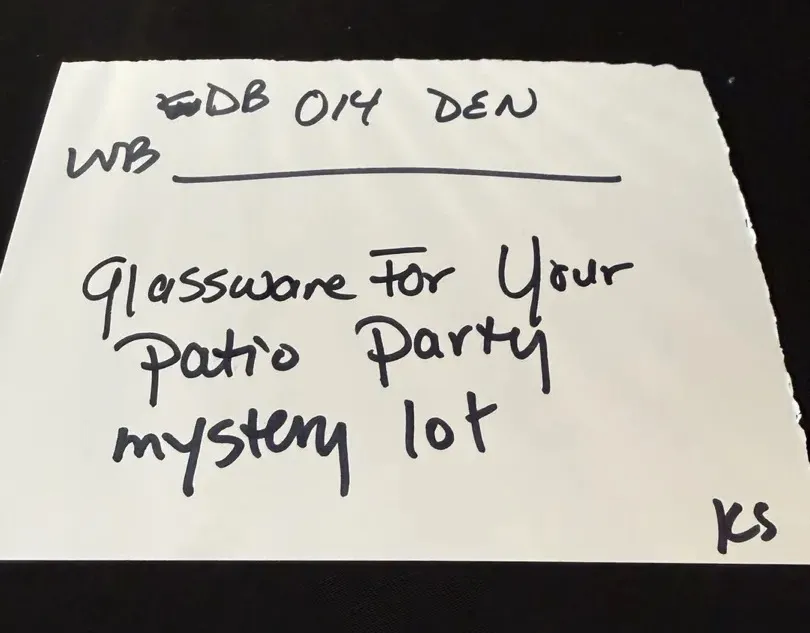 DB 014 DEN
WB
Glassware For Your
Patio Party
mystery lot
KS